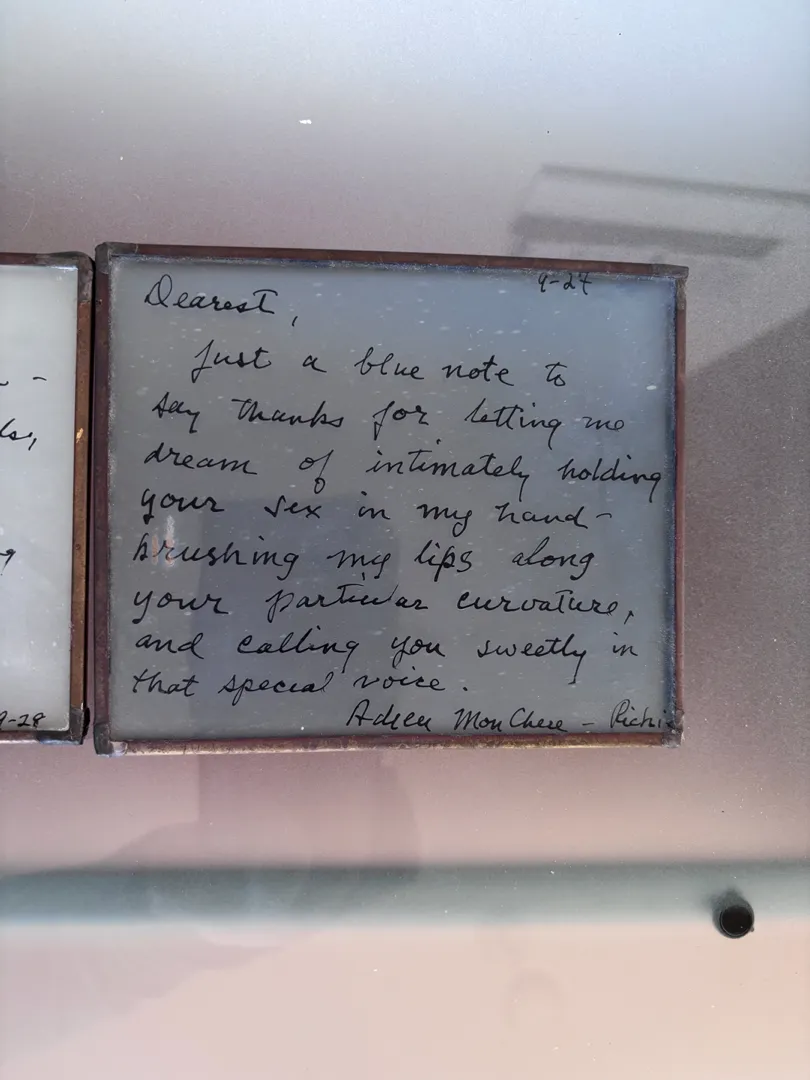 9-27
Dearest,
Just a blue note to
say thanks for letting me
dream of intimately holding
your sex in my hand-
brushing my lips along
your particular curvature,
and calling you sweetly in
that special voice.
Adieu Mon Chere - Richie
ls,
g
9-28